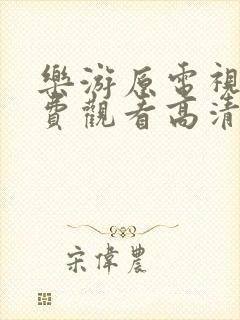 樂游原電視
費觀看高清
宋偉農